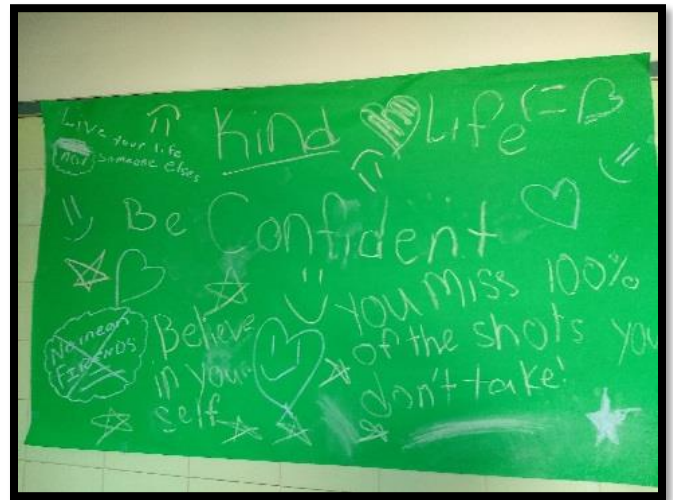 Live your life
not someone elses
Kind Life
Be Confident
No mean
Friends
Believe
in your
self
you miss 100%
of the shots you
don't take!